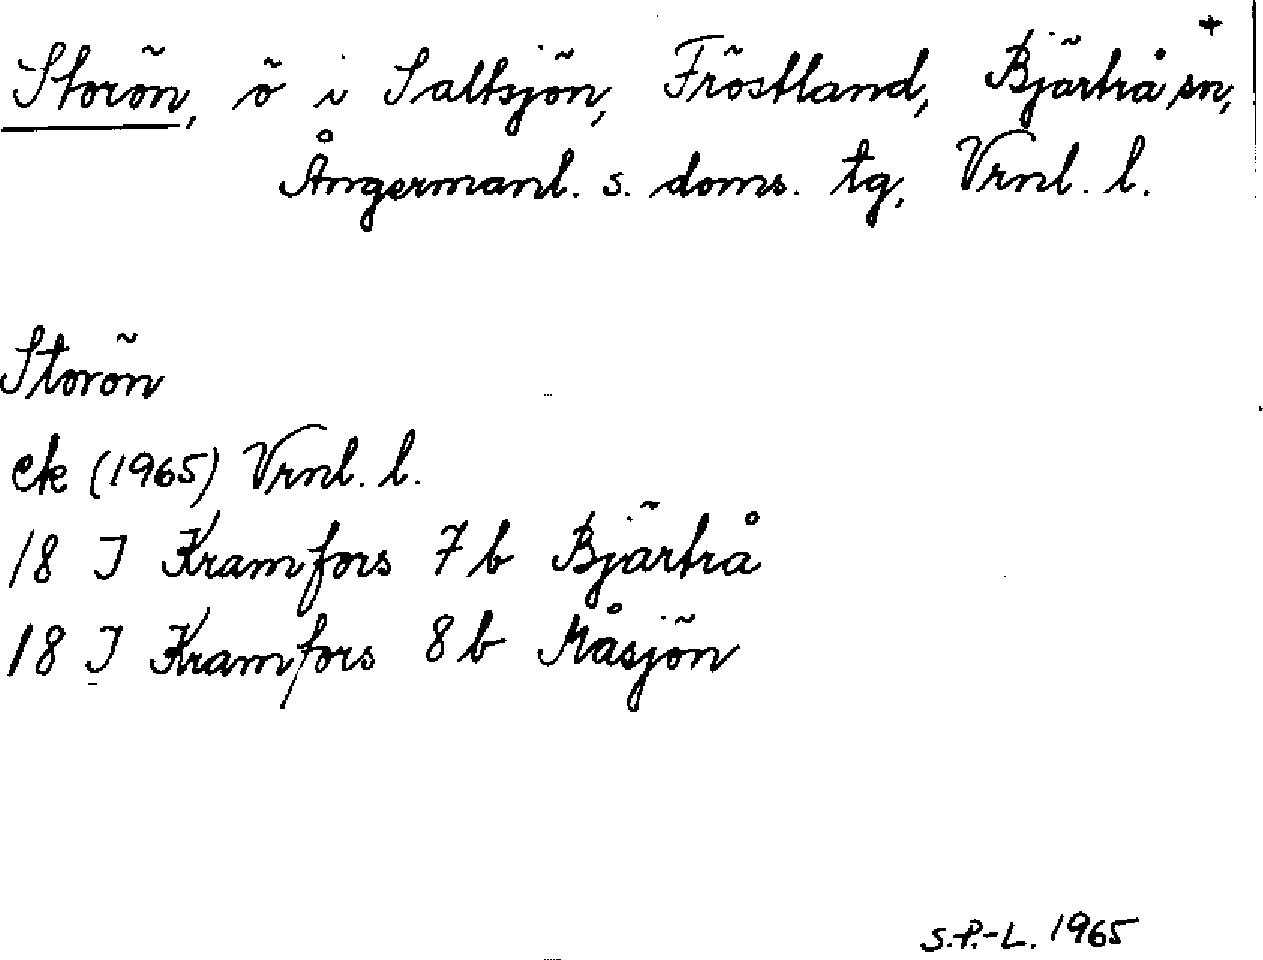 Storön, ö i Saltsjön, Fröstland, Bjärtrå sn, +
Ångermanl. s. doms. tg, Vrnl. l.
Storön
ek (1965) Vrnl. l.
18 I Kramfors 7b Bjärtrå
18 I Kramfors 8b Måsjön
S.P.-L. 1965